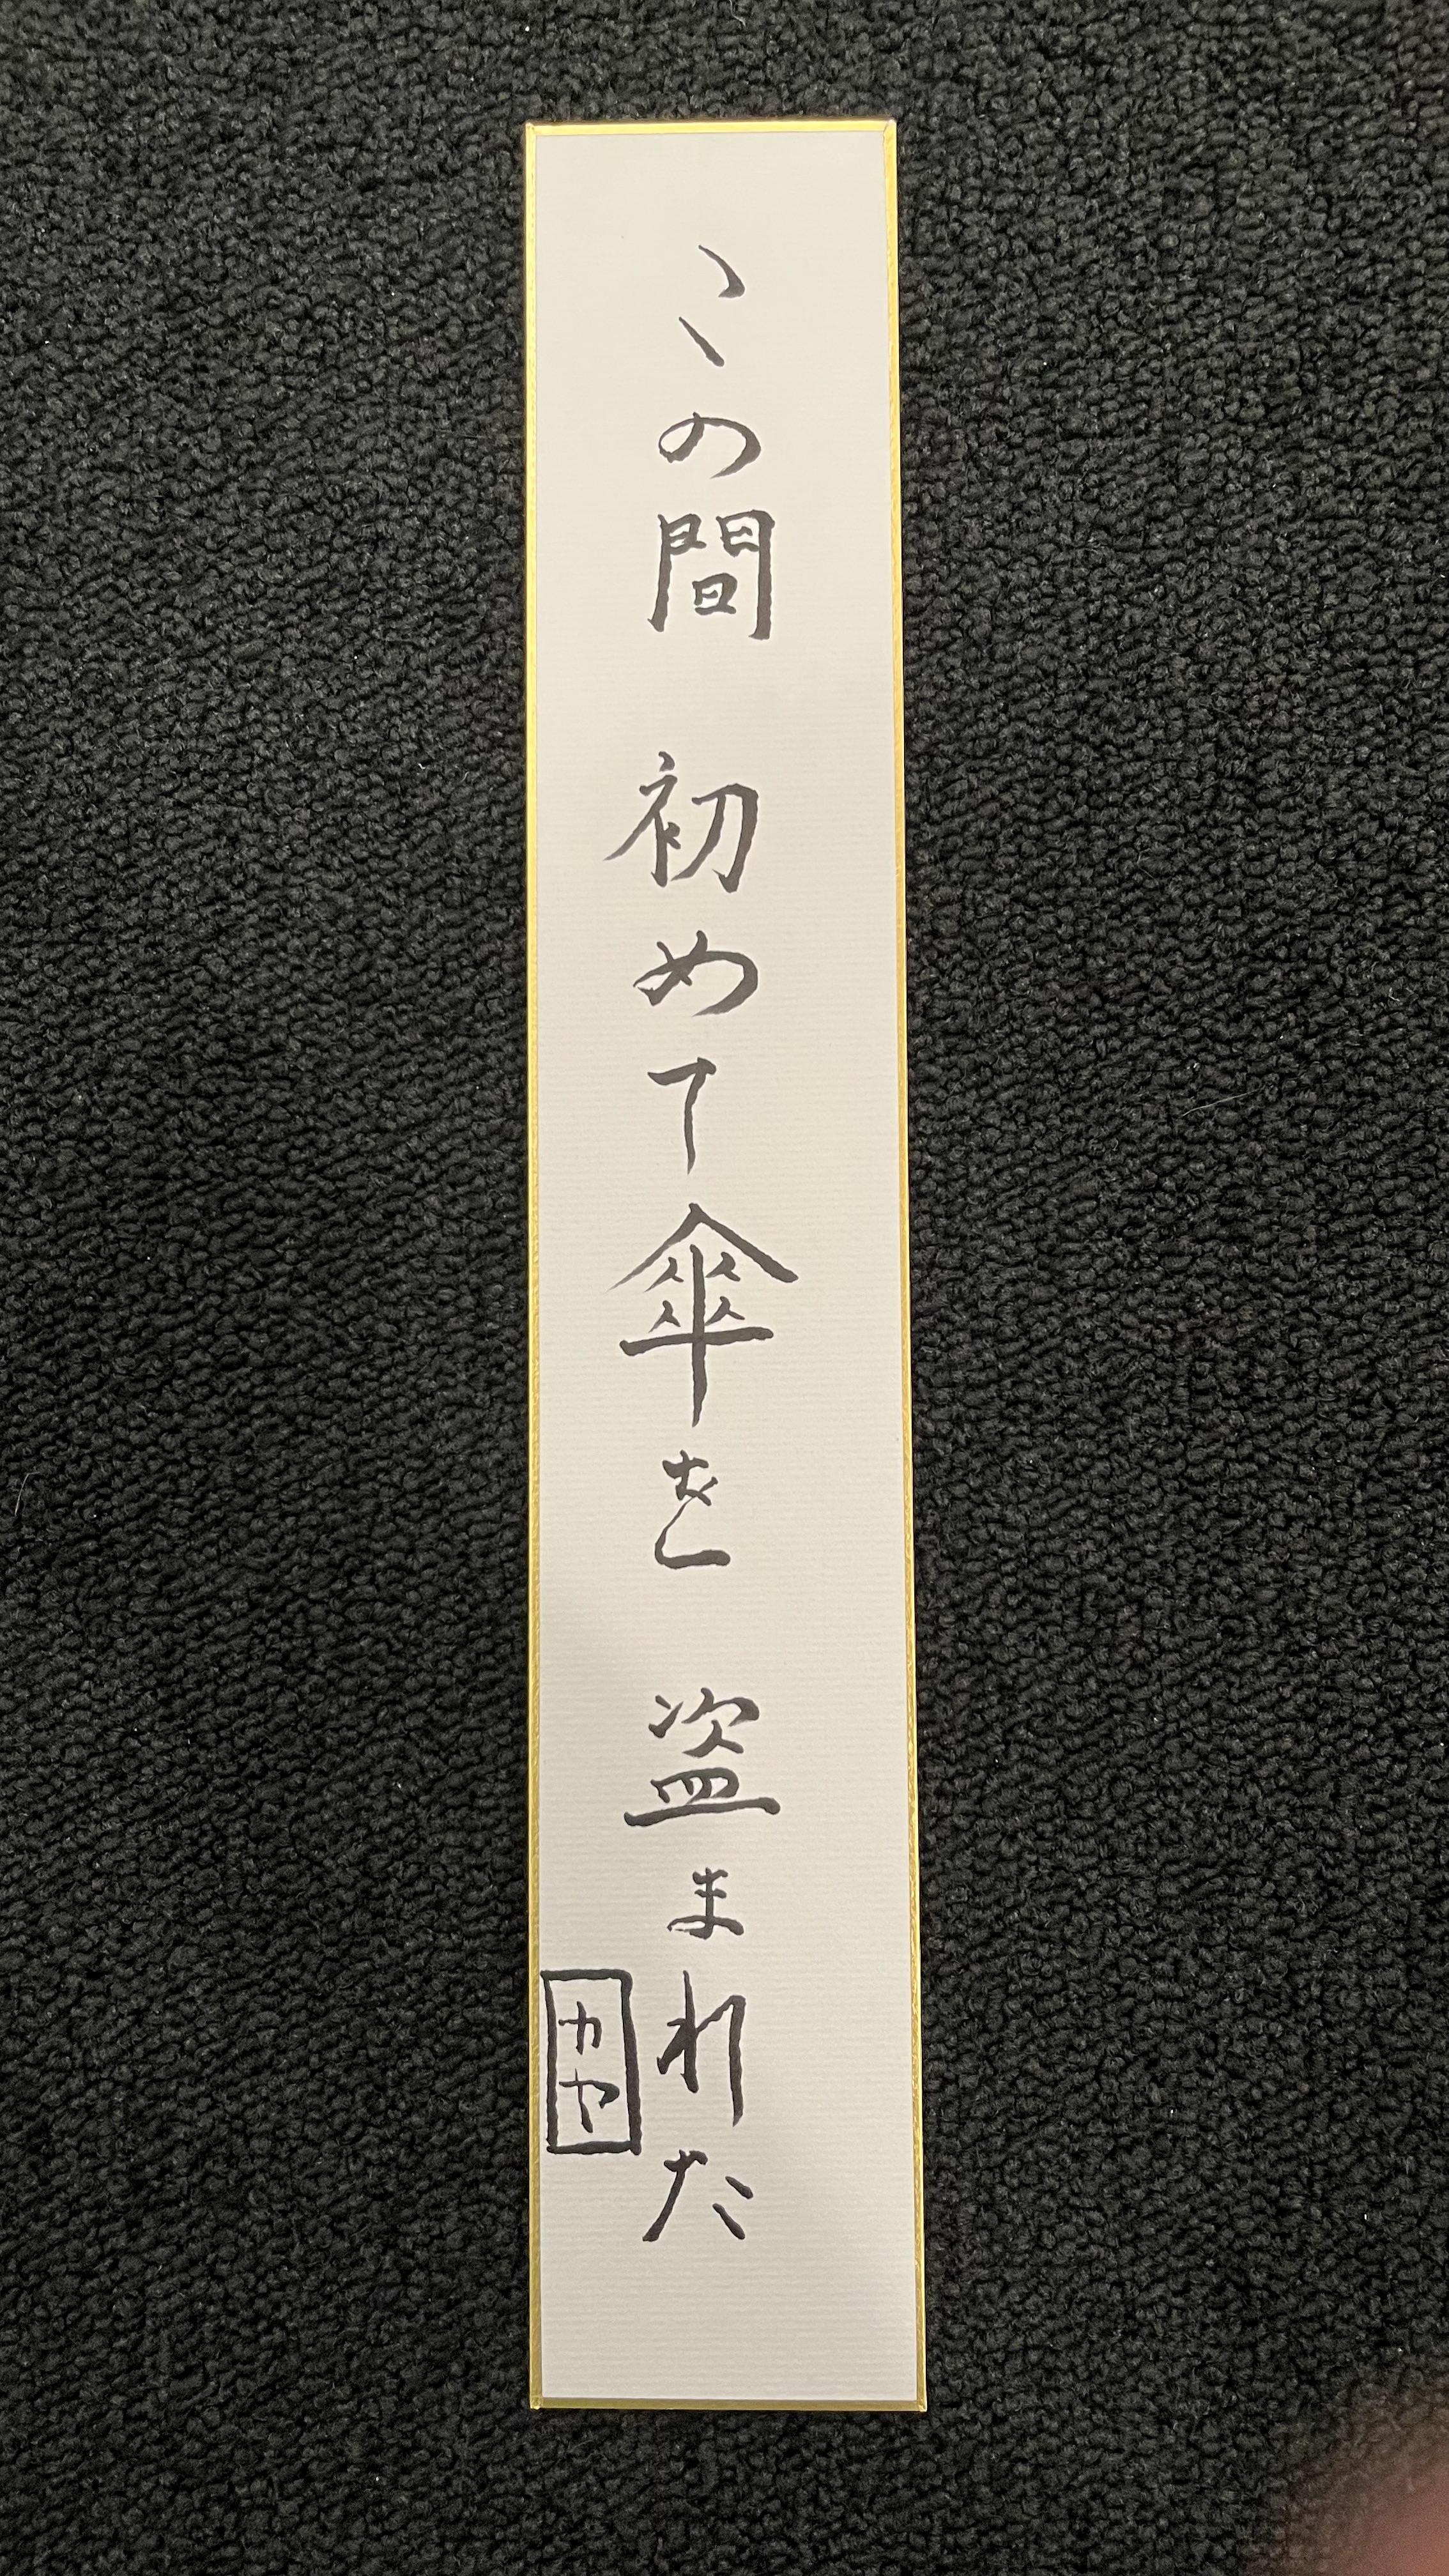 この間 初めて傘を 盗まれた
カヤ